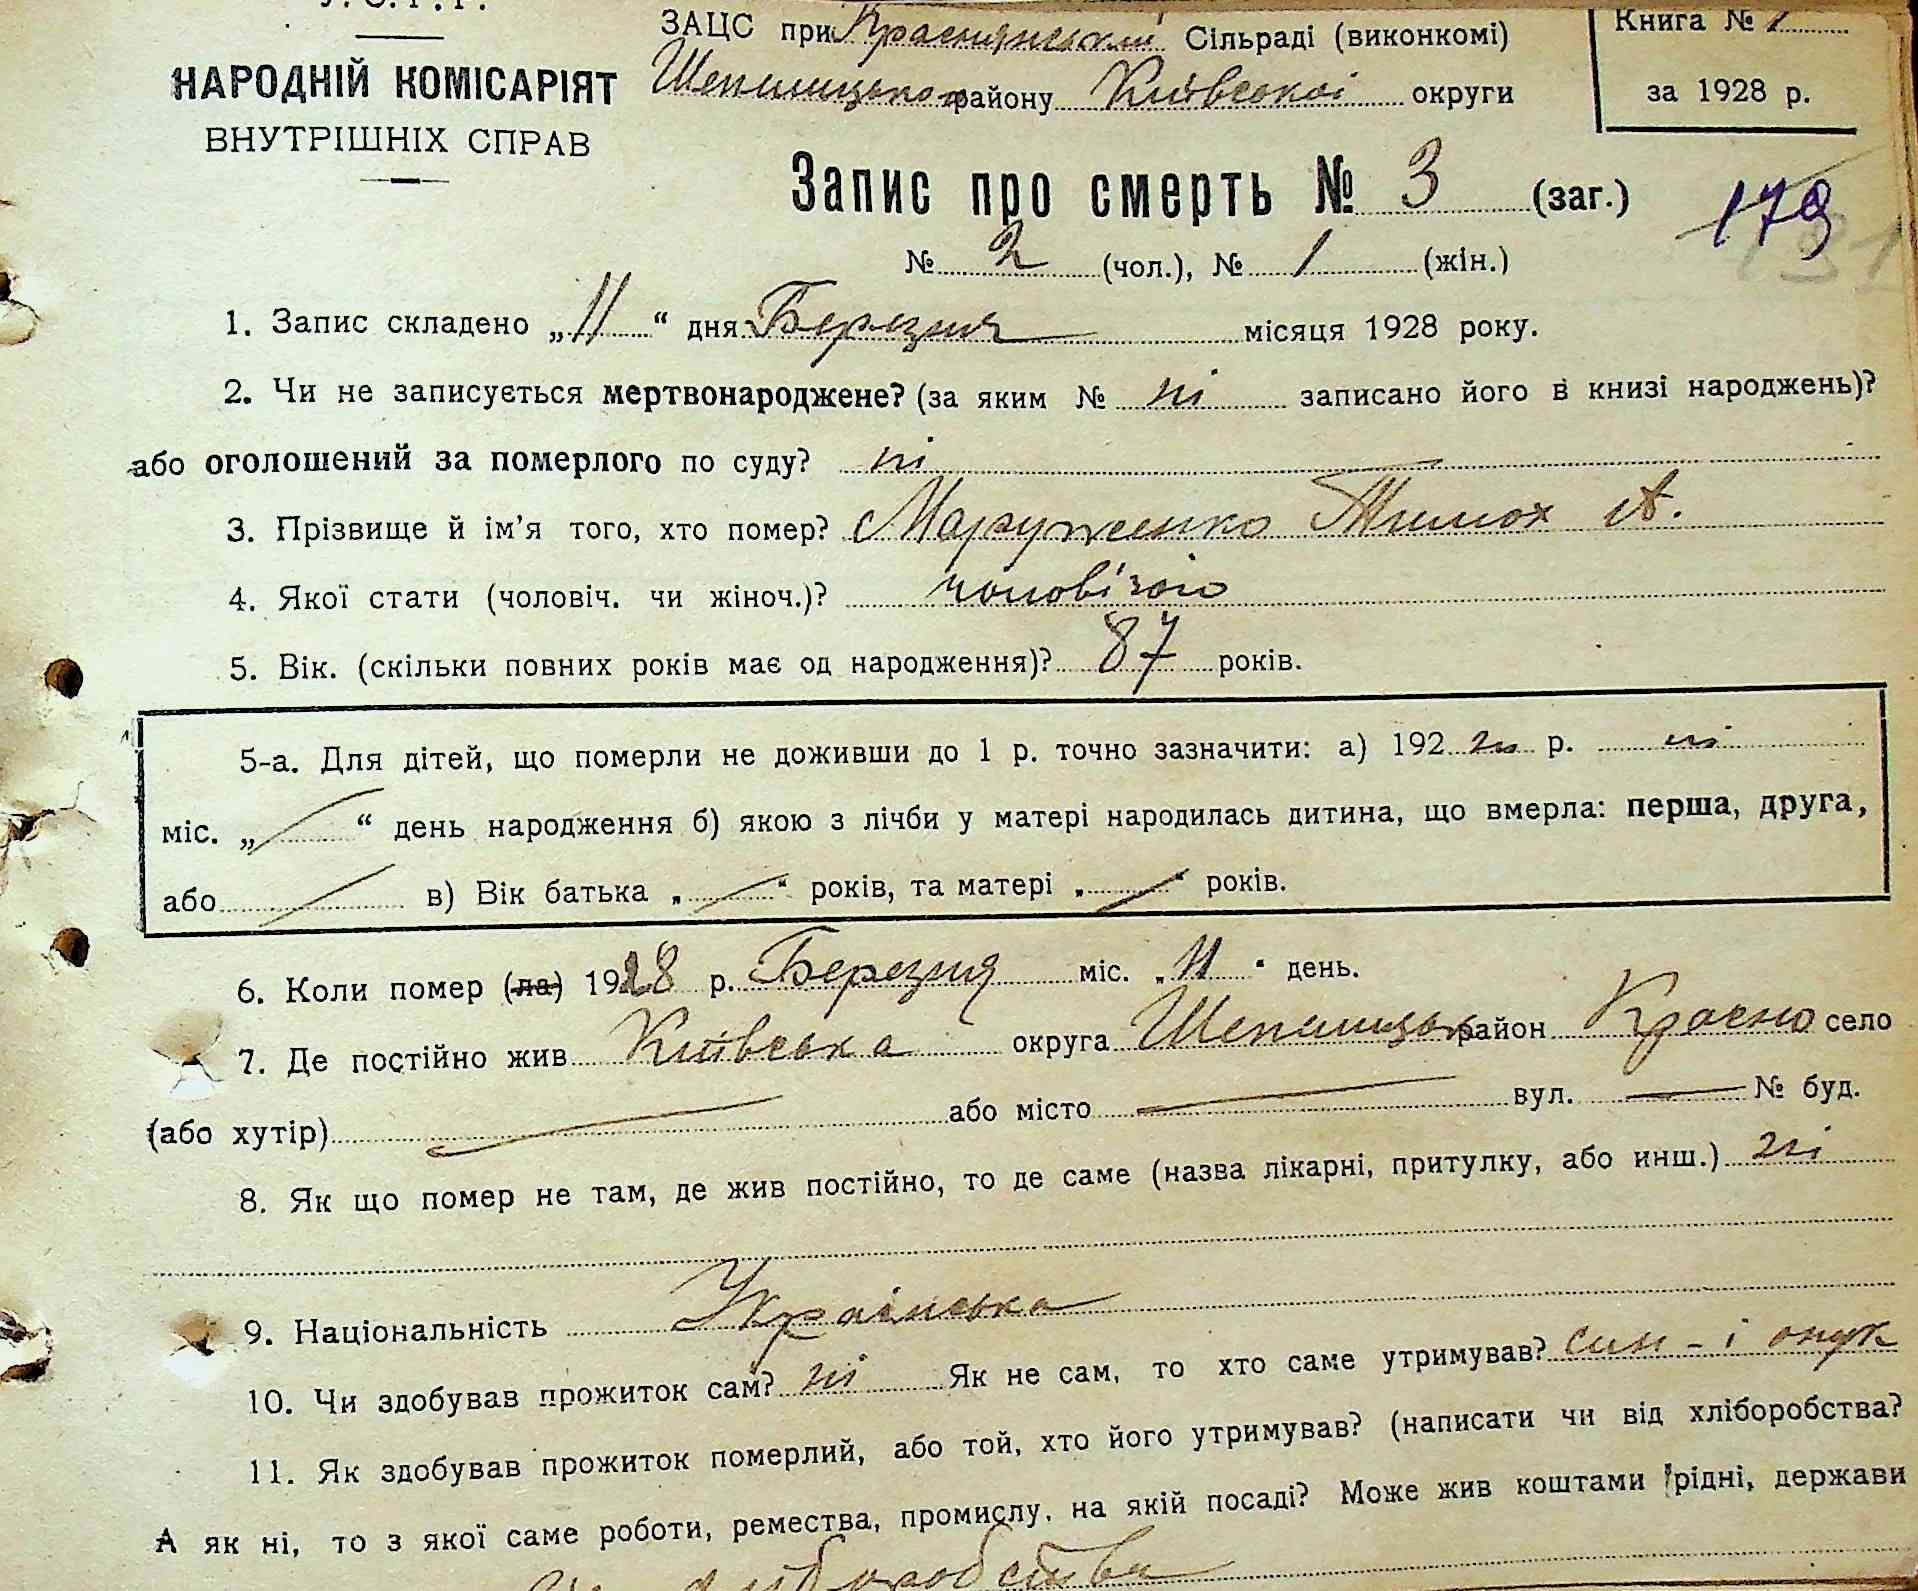 У. С. Р. Р.
НАРОДНІЙ КОМІСАРІЯТ
ВНУТРІШНІХ СПРАВ
ЗАЦС при Краснянській Сільраді (виконкомі)
Шепелицького району Київської округи
Книга № 1
за 1928 р.
Запис про смерть № 3 (заг.)
179
131
№ 2 (чол.), № 1 (жін.)
1. Запис складено „11“ дня Березня місяця 1928 року.
2. Чи не записується мертвонароджене? (за яким № ні записано його в книзі народжень)?
або оголошений за померлого по суду? ні
3. Прізвище й ім'я того, хто помер? Маруженко Тимох А.
4. Якої стати (чоловіч. чи жіноч.)? чоловічої
5. Вік. (скільки повних років має од народження)? 87 років.
5-а. Для дітей, що померли не доживши до 1 р. точно зазначити: а) 192 ні р. ні
міс. „ “ день народження б) якою з лічби у матері народилась дитина, що вмерла: перша, друга,
або в) Вік батька „ “ років, та матері „ “ років.
6. Коли помер (ла) 1928 р. Березня міс. „11“ день.
7. Де постійно жив Київська округа Шепелицьк район Красно село
(або хутір) або місто вул. № буд.
8. Як що помер не там, де жив постійно, то де саме (назва лікарні, притулку, або инш.) ні
9. Національність Українська
10. Чи здобував прожиток сам? ні Як не сам, то хто саме утримував? син - і онук
11. Як здобував прожиток померлий, або той, хто його утримував? (написати чи від хліборобства?
А як ні, то з якої саме роботи, ремества, промислу, на якій посаді? Може жив коштами рідні, держави
хліборобства